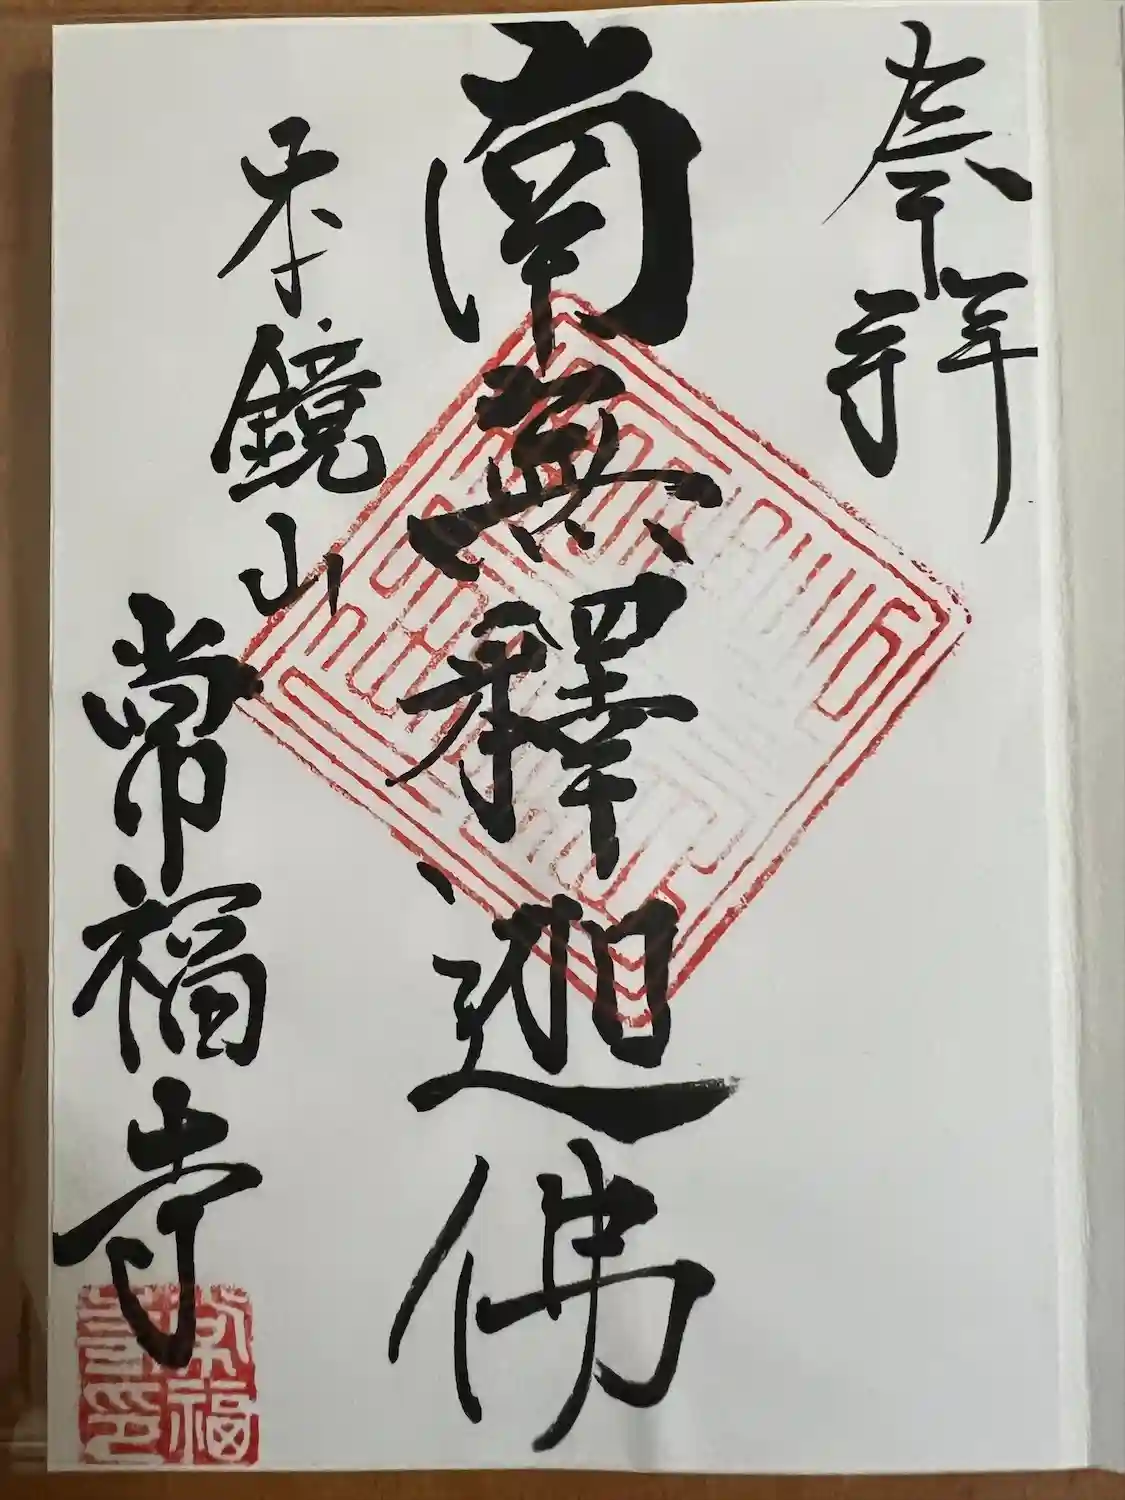 奉拝
南無釋迦佛
鏡山
常福寺
常福
寺印